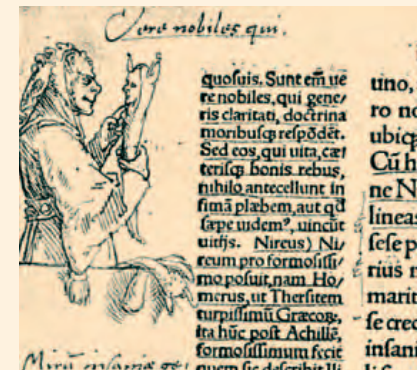 Vere nobiles qui.
quoſuis. Sunt em̃ ue
re nobiles, qui gene/
ris claritati, doctrina
moribuſq; reſpõdẽt.
Sed eos, qui uita, cæt
teriſq; bonis rebus,
nihilo antecellunt in
fimã plæbem, aut qd̃
ſæpe uidem⁹, uincũt
uitijs. Nireus) Ni/
reum pro formoſiſſi/
mo poſuit, nam Ho/
merus, ut Therſitem
turpiſſimũ Græcoꝝ,
ita hũc poſt Achillẽ,
formoſiſſimum fecit
uno,
ro no
ubiq;
Cũ h
ne N
lineas
ſeſe p
rius
marit
ſe cred
inſani